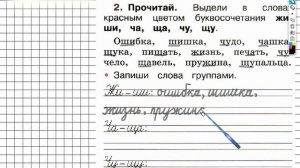 2. Прочитай. Выдели в слова
красным цветом буквосочетания жи
ши, ча, ща, чу, щу.
Ошибка, шишка, чудо, чашка
щука, пищать, жизнь, печать, чу
чело, щавель, пружина, щупальца.
• Запиши слова группами.
Жи – ши: ошибка, шишка,
жизнь, пружина
Ча-ща:
Чу-щу: